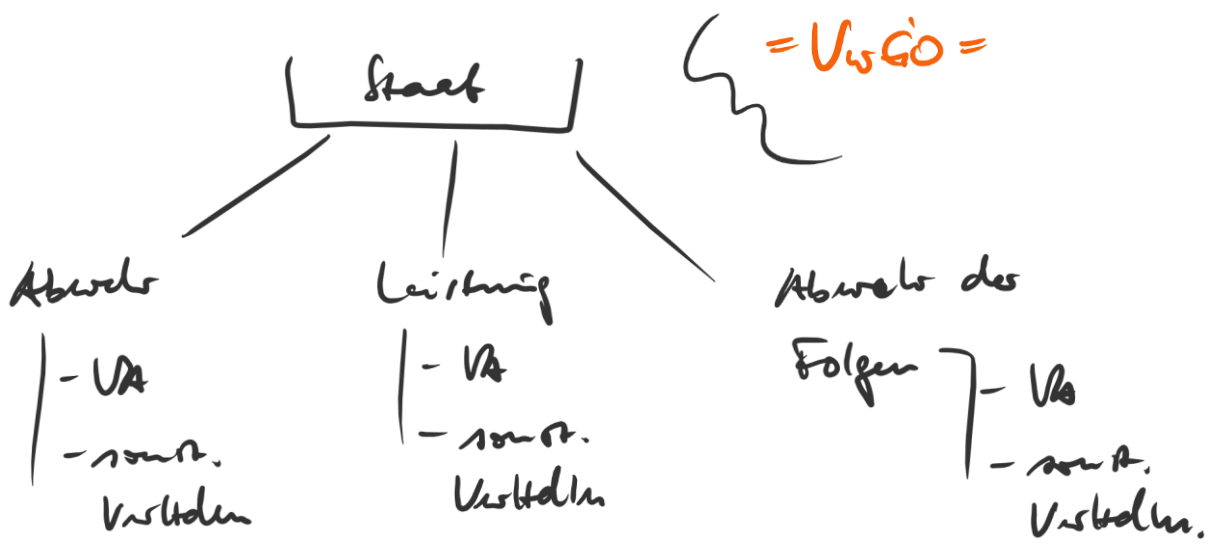 = VwGO =
Staat
Abwehr
- VA
- sonst.
Verhalten
Leistung
- VA
- sonst.
Verhalten
Abwehr der
Folgen
- VA
- sonst.
Verhalten.